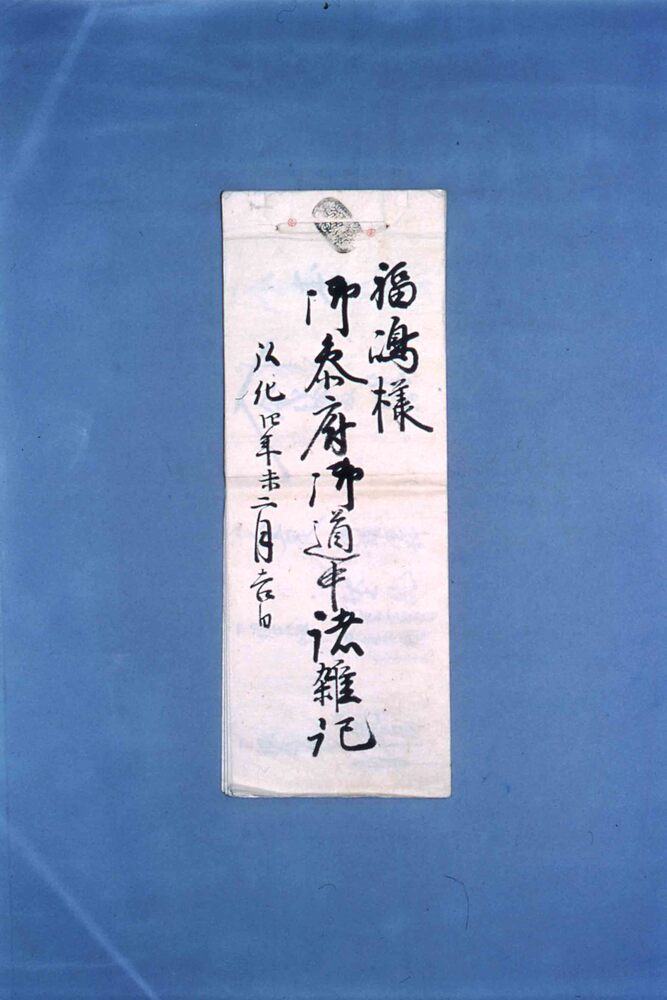 福嶋様
御参府御道中諸雑記
弘化四年未二月吉日